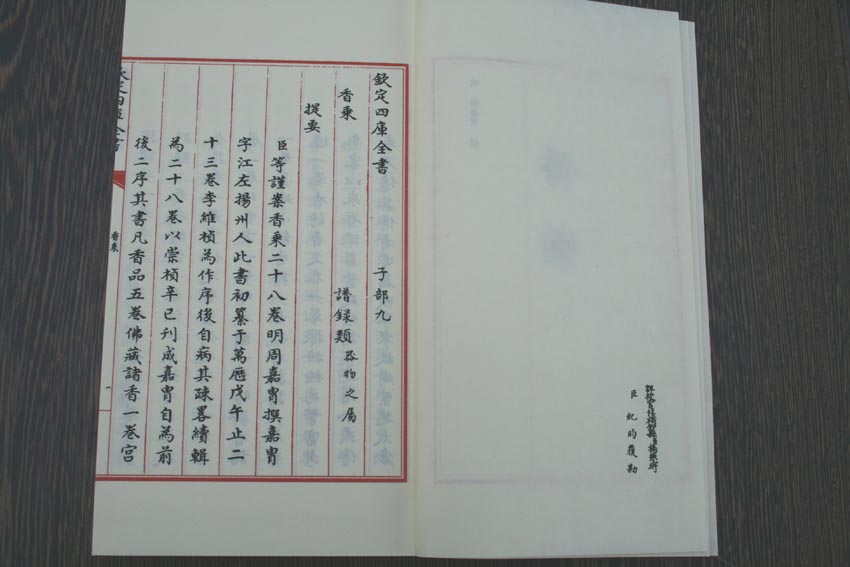 詳校官主事銜臣楊懋珩
臣紀昀覆勘
欽定四庫全書 子部九
香乘 譜録類器物之屬
提要
臣等謹案香乘二十八卷明周嘉胄撰嘉胄
字江左揚州人此書初纂于萬厯戊午止二
十三卷李維楨為作序後自病其疎畧續輯
為二十八卷以崇楨辛巳刊成嘉胄自為前
後二序其書凡香品五卷佛藏諸香一卷宫
欽定四庫全書
香乘
一